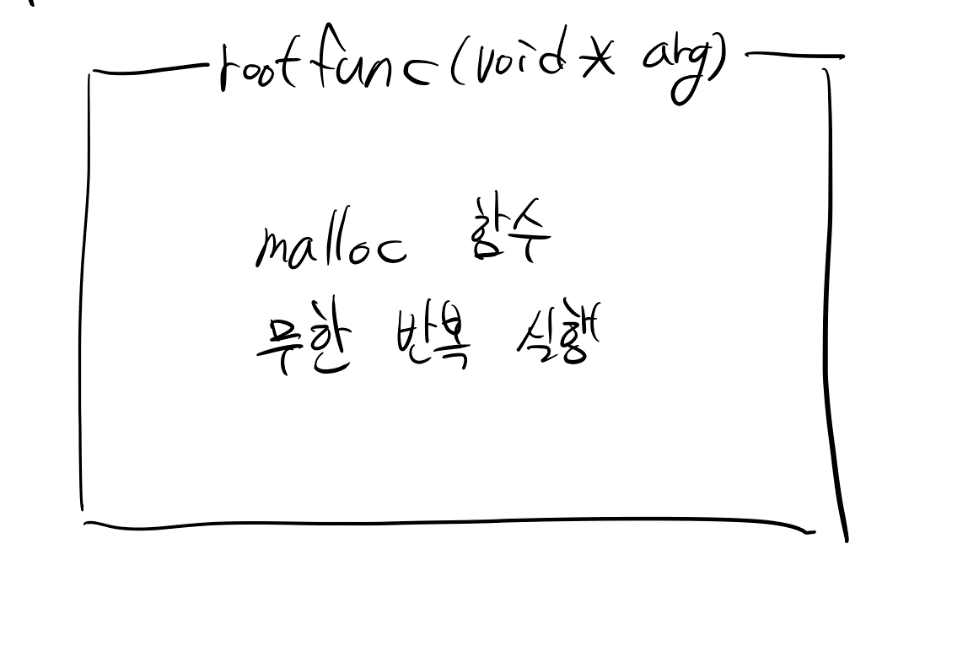 rootfunc(void* arg)
malloc 함수
무한 반복 실행